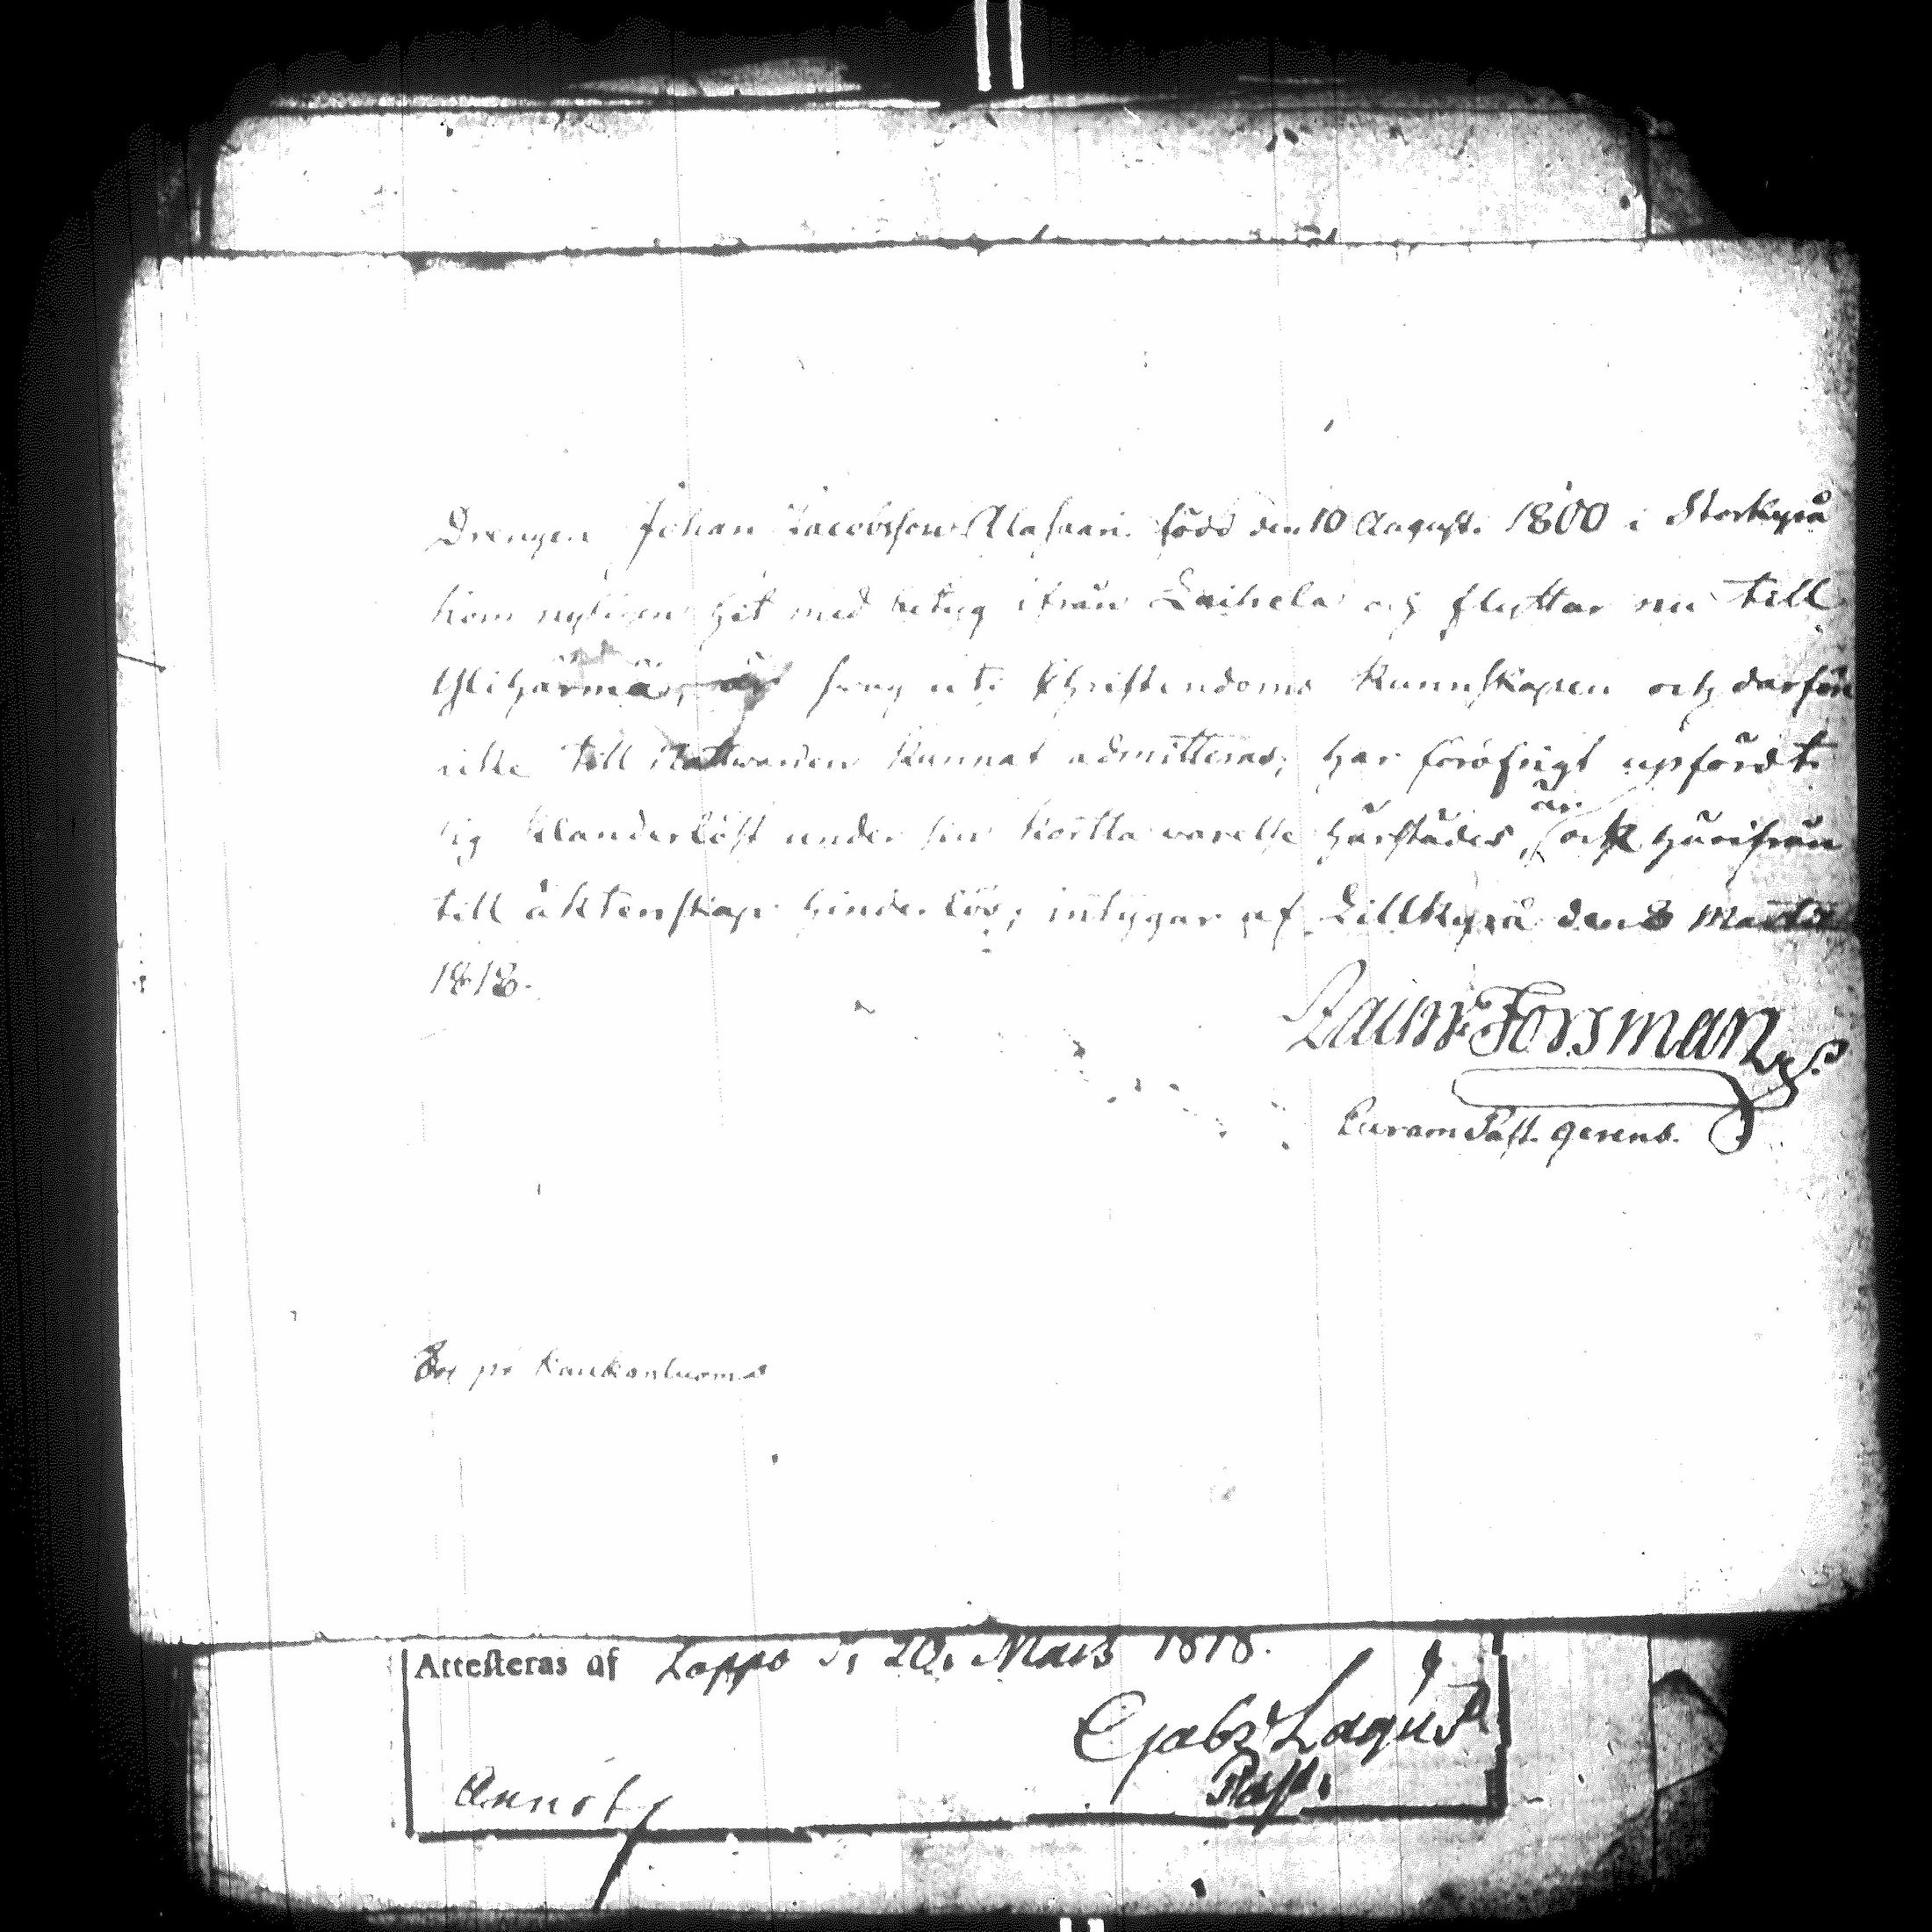 Drengen Johan Jacobsson Alasaari född den 10 August. 1800 i Storkyrå
kom nyligen hit med betyg ifrån Laihela och flyttar nu till
Ylihärmä, är svag uti Christendoms kunnskapen och därföre
icke till Nattwarden kunnat admitteras; har föröfrigt upfördt
sig klanderlöst under sin kortta varelse härstädes, är och härifrån
till äktenskap hinderlös; intygar af Lillkyrå den 8 Martii
1818.
Zach: Forsman
Curam Past. gerens.
på Kaukonluoma
Attesteras af Lappo d, 20, Mars 1818.
Gabr Lagus
Past.